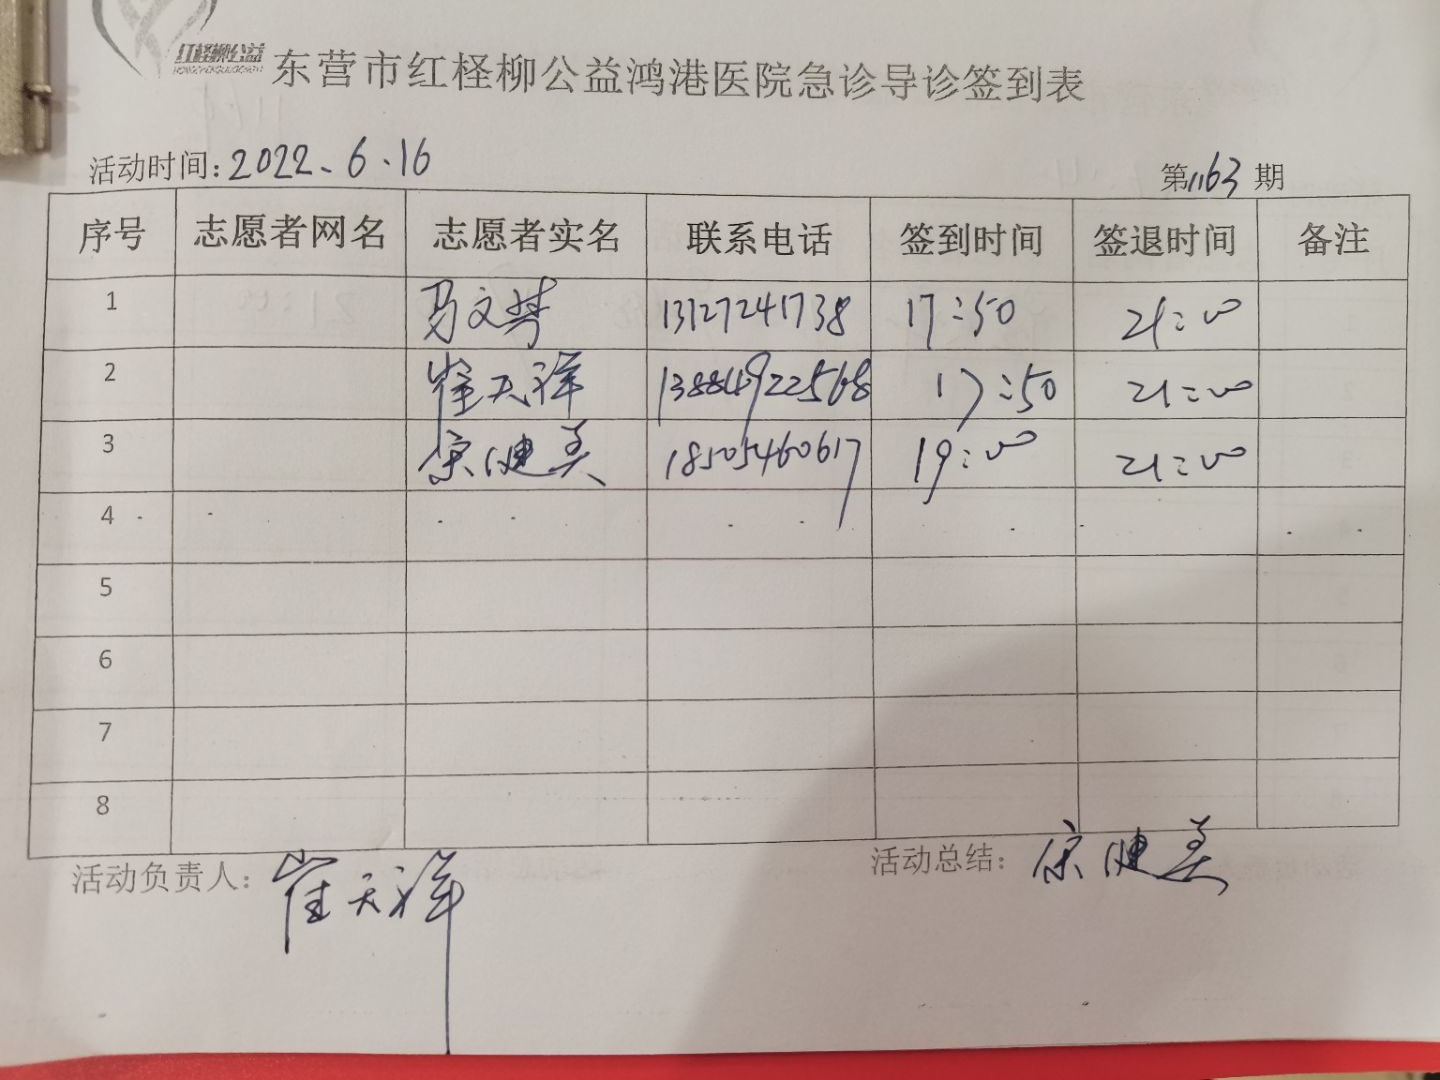 红柽柳公益
东营市红柽柳公益鸿港医院急诊导诊签到表
活动时间:2022.6.16 第1163期
序号 志愿者网名 志愿者实名 联系电话 签到时间 签退时间 备注
1 马文梦 13127241738 17:50 21:00
2 崔天祥 13884922568 17:50 21:00
3 宗健美 18505460617 19:00 21:00
4
5
6
7
8
活动负责人:崔天祥 活动总结:宗健美